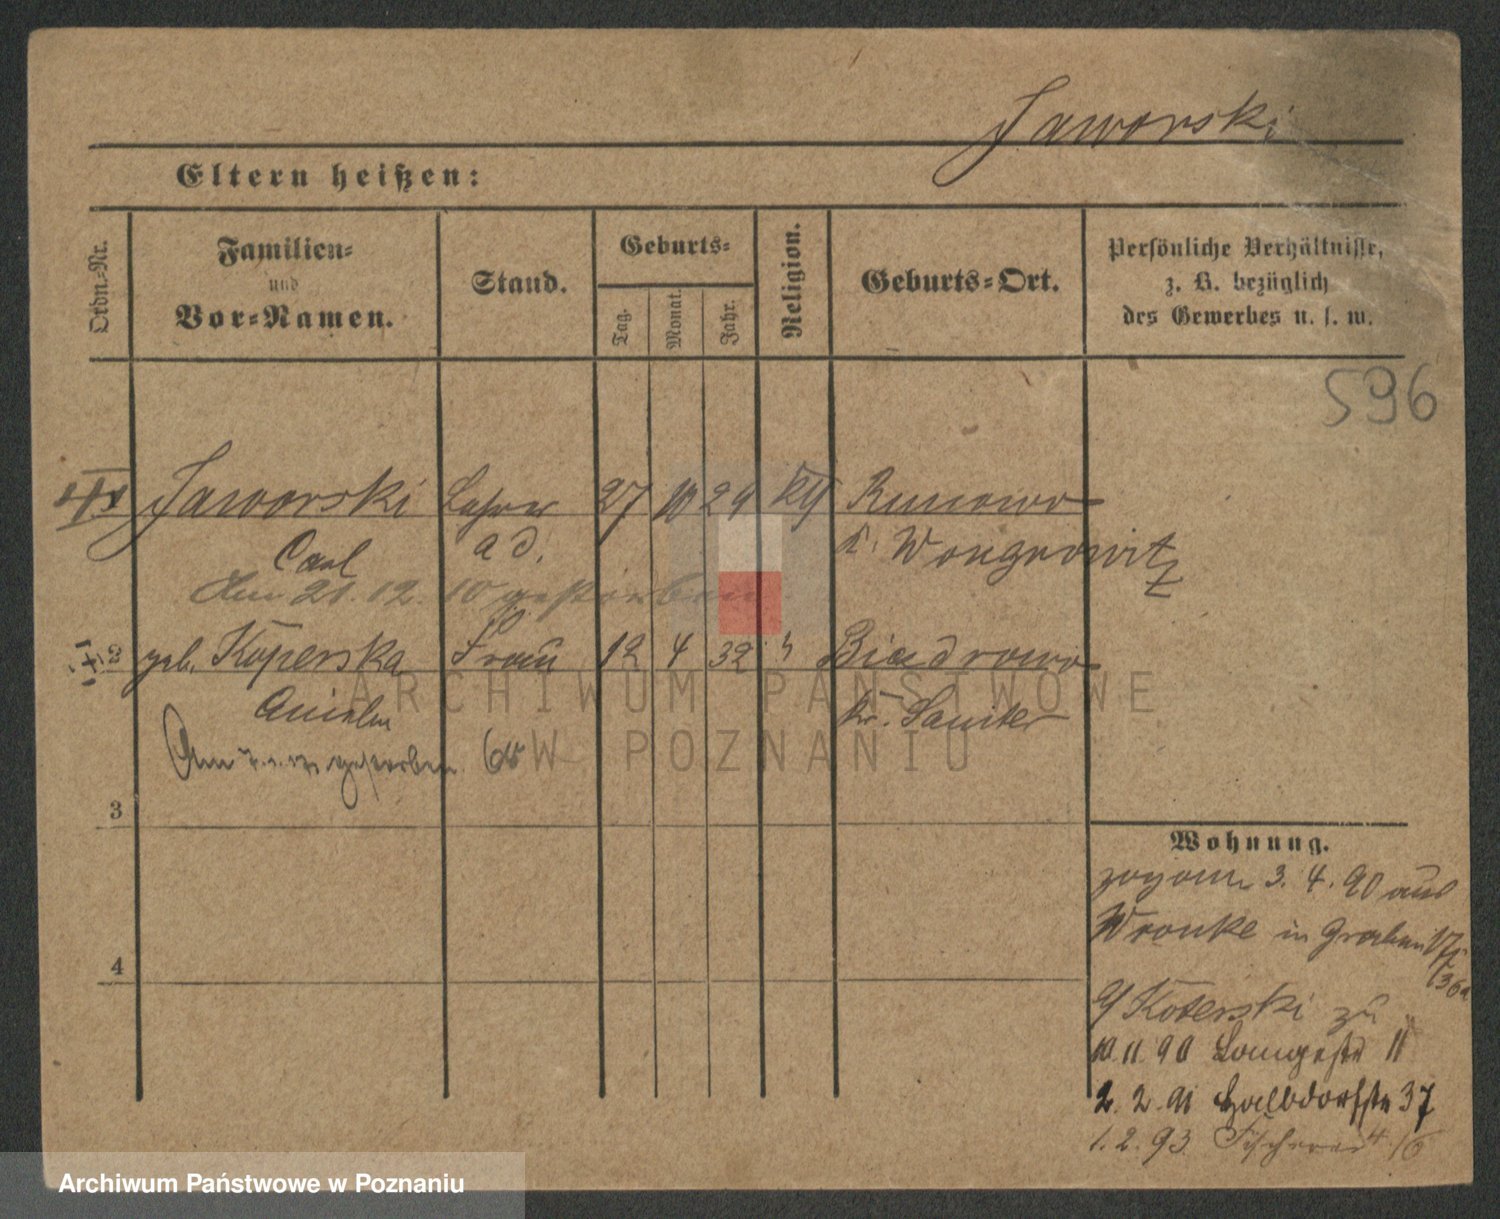 Jaworski
Eltern heißen:
Ordn.-Nr.
Familien-
und
Vor-Namen.
Stand.
Geburts-
Tag.
Monat.
Jahr.
Religion.
Geburts-Ort.
Persönliche Verhältnisse,
z. B. bezüglich
des Gewerbes u. s. w.
596
Jaworski Lehrer 27 10 29 Runowo
Carl a d. Kr. Wongrowitz
Am 21. 12. 10 gestorben
2 geb. Koperska Frau 12 4 32 " Biadrowo
Aniela Kr. Samter
Am gestorben
3
4
Wohnung.
zogam 3. 4. 90 aus
Wronke in Graben
Koterski zu
10. 11. 90 Langestr 11
2. 2. 91 Halbdorfstr 37
1. 2. 93 Fischerei 16
ARCHIWUM PAŃSTWOWE
W POZNANIU
Archiwum Państwowe w Poznaniu